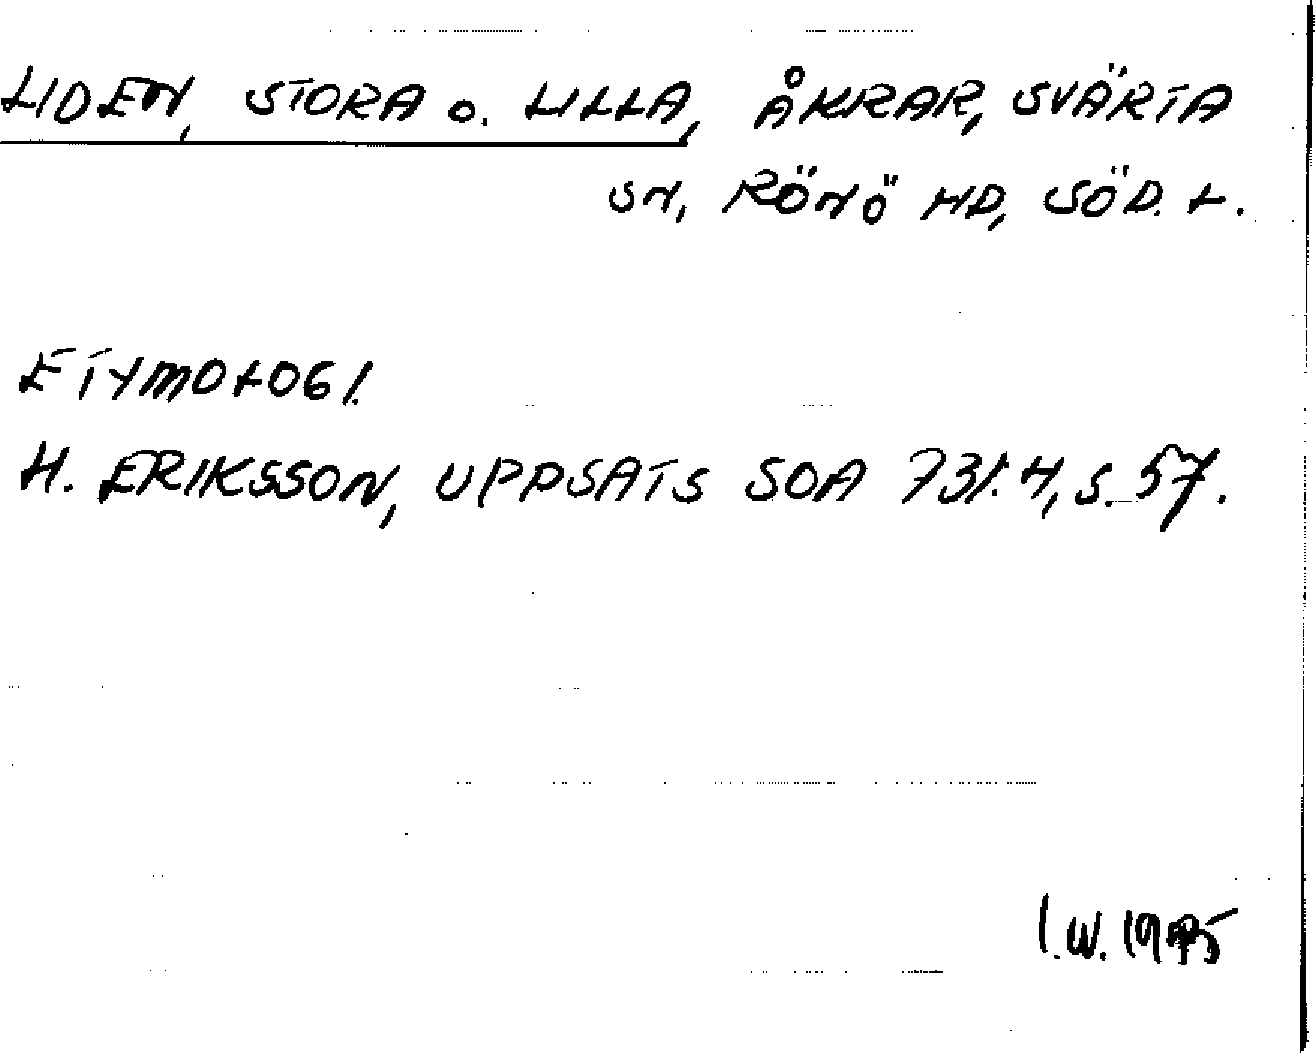 LIDEN, STORA o. LILLA, ÅKRAR, SVÄRTA
SN, RÖNÖ HD, SÖD. L.
ETYMOLOGI.
H. ERIKSSON, UPPSATS SOA 731:4, S. 57.
I.W. 1975